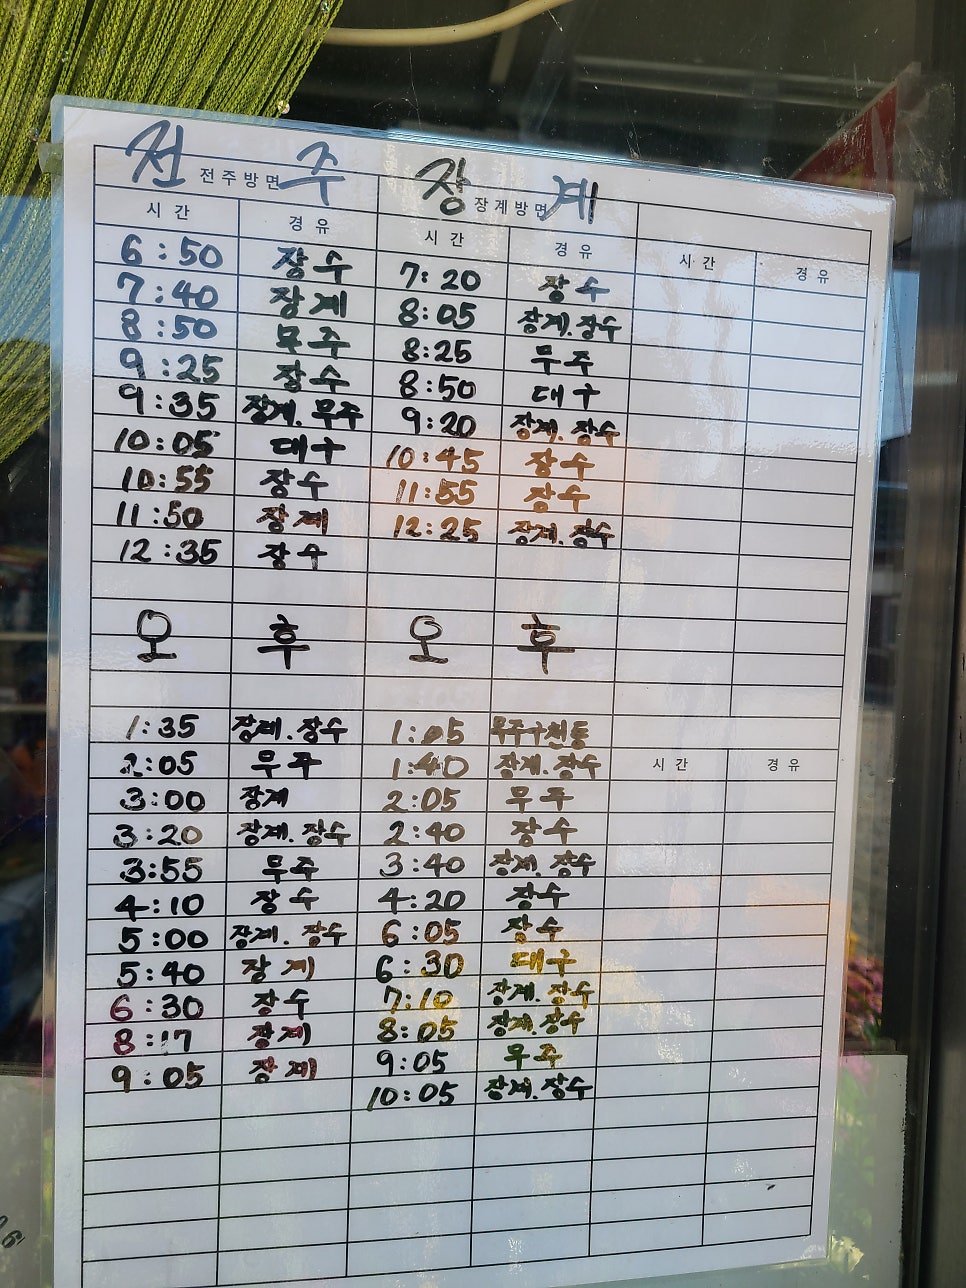 전주 전주방면 장계 장계방면
시간 경유 시간 경유 시간 경유
6:50 장수 7:20 장수
7:40 장계 8:05 장계.장수
8:50 무주 8:25 무주
9:25 장수 8:50 대구
9:35 장계.무주 9:20 장계.장수
10:05 대구 10:45 장수
10:55 장수 11:55 장수
11:50 장계 12:25 장계.장수
12:35 장수
오후 오후
1:35 장계.장수 1:05 무주구천동
2:05 무주 1:40 장계.장수 시간 경유
3:00 장계 2:05 무주
3:20 장계.장수 2:40 장수
3:55 무주 3:40 장계.장수
4:10 장수 4:20 장수
5:00 장계.장수 6:05 장수
5:40 장계 6:30 대구
6:30 장수 7:10 장계.장수
8:17 장계 8:05 장계.장수
9:05 장계 9:05 무주
10:05 장계.장수